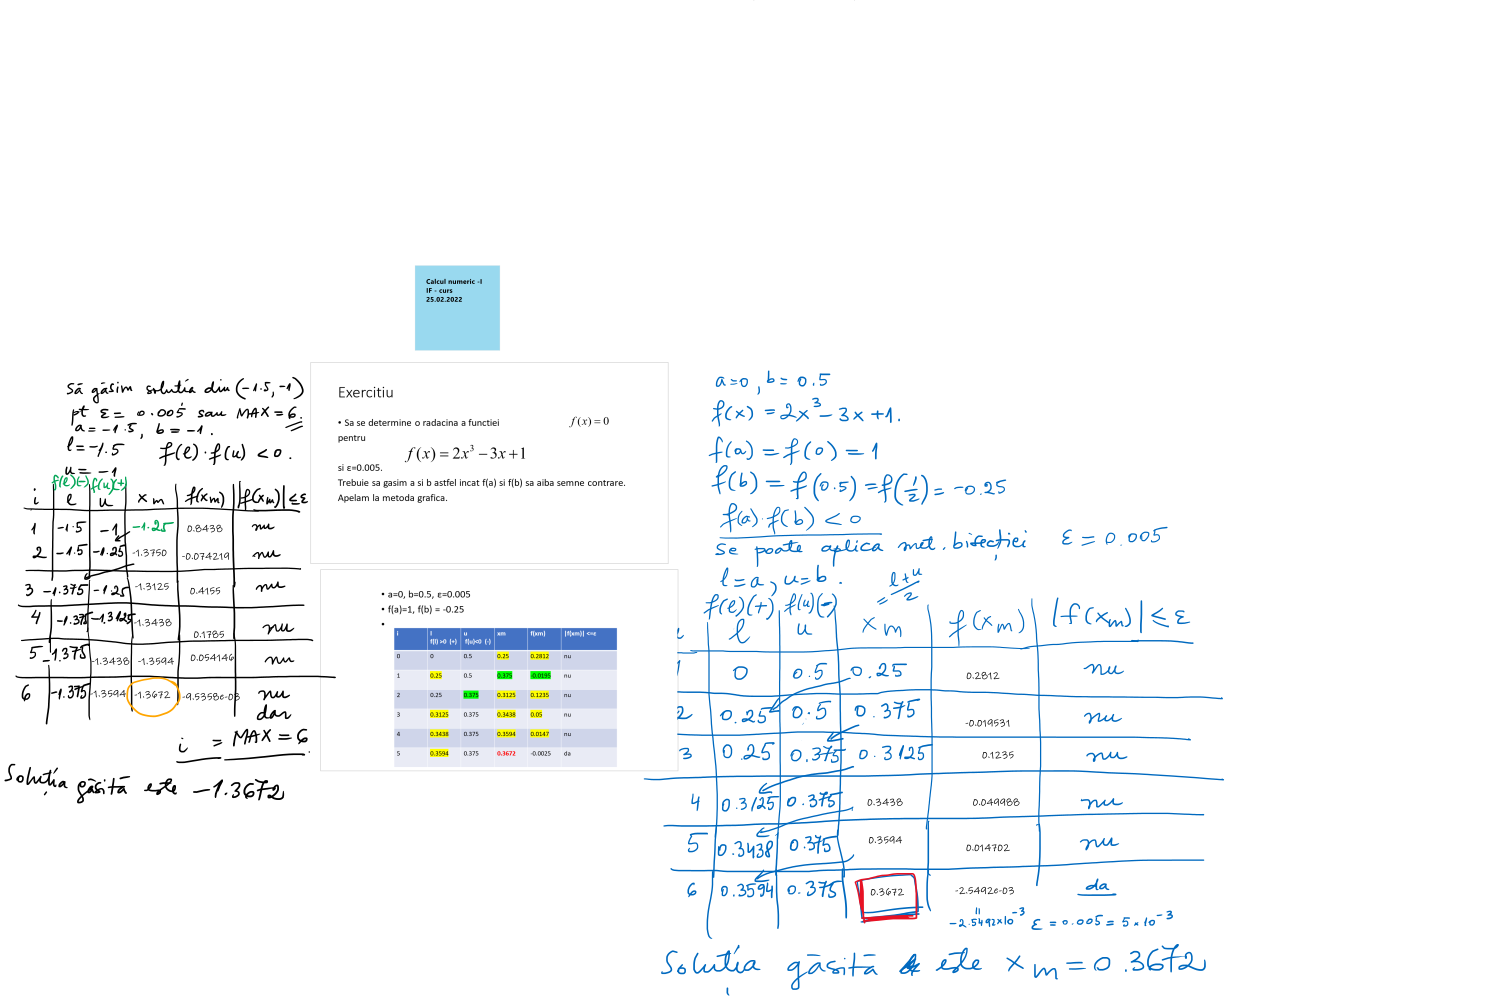 Calcul numeric -I
IF - curs
25.02.2022
Să găsim soluția din (-1.5, -1)
pt ε = 0.005 sau MAX = 6.
a = -1.5, b = -1.
l = -1.5 f(l)·f(u) < 0.
u = -1
f(l)(-) f(u)(+)
i l u xm f(xm) |f(xm)| ≤ ε
1 -1.5 -1 -1.25 0.8438 nu
2 -1.5 -1.25 -1.3750 -0.074219 nu
3 -1.375 -1.25 -1.3125 0.4155 nu
4 -1.375 -1.3125 -1.3438 0.1785 nu
5 -1.375 -1.3438 -1.3594 0.054146 nu
6 -1.375 -1.3594 -1.3672 -9.5358e-03 nu
dar
i = MAX = 6.
Soluția găsită este -1.3672
Exercitiu
• Sa se determine o radacina a functiei f(x) = 0
pentru
f(x) = 2x³ − 3x + 1
si ε=0.005.
Trebuie sa gasim a si b astfel incat f(a) si f(b) sa aiba semne contrare.
Apelam la metoda grafica.
• a=0, b=0.5, ε=0.005
• f(a)=1, f(b) = -0.25
•
i l u xm f(xm) |f(xm)| <=ε
f(l) >0 (+) f(u)<0 (-)
0 0 0.5 0.25 0.2812 nu
1 0.25 0.5 0.375 -0.0195 nu
2 0.25 0.375 0.3125 0.1235 nu
3 0.3125 0.375 0.3438 0.05 nu
4 0.3438 0.375 0.3594 0.0147 nu
5 0.3594 0.375 0.3672 -0.0025 da
a=0, b = 0.5
f(x) = 2x³ - 3x + 1.
f(a) = f(0) = 1
f(b) = f(0.5) = f(1/2) = -0.25
f(a)·f(b) < 0
Se poate aplica met. bisecției ε = 0.005
l = a, u = b.
= l+u/2
f(l)(+) f(u)(-)
l u xm f(xm) |f(xm)| ≤ ε
1 0 0.5 0.25 0.2812 nu
2 0.25 0.5 0.375 -0.019531 nu
3 0.25 0.375 0.3125 0.1235 nu
4 0.3125 0.375 0.3438 0.049988 nu
5 0.3438 0.375 0.3594 0.014702 nu
6 0.3594 0.375 0.3672 -2.5492e-03 da
=
-2.5492×10⁻³ ε = 0.005 = 5×10⁻³
Soluția găsită este xm = 0.3672